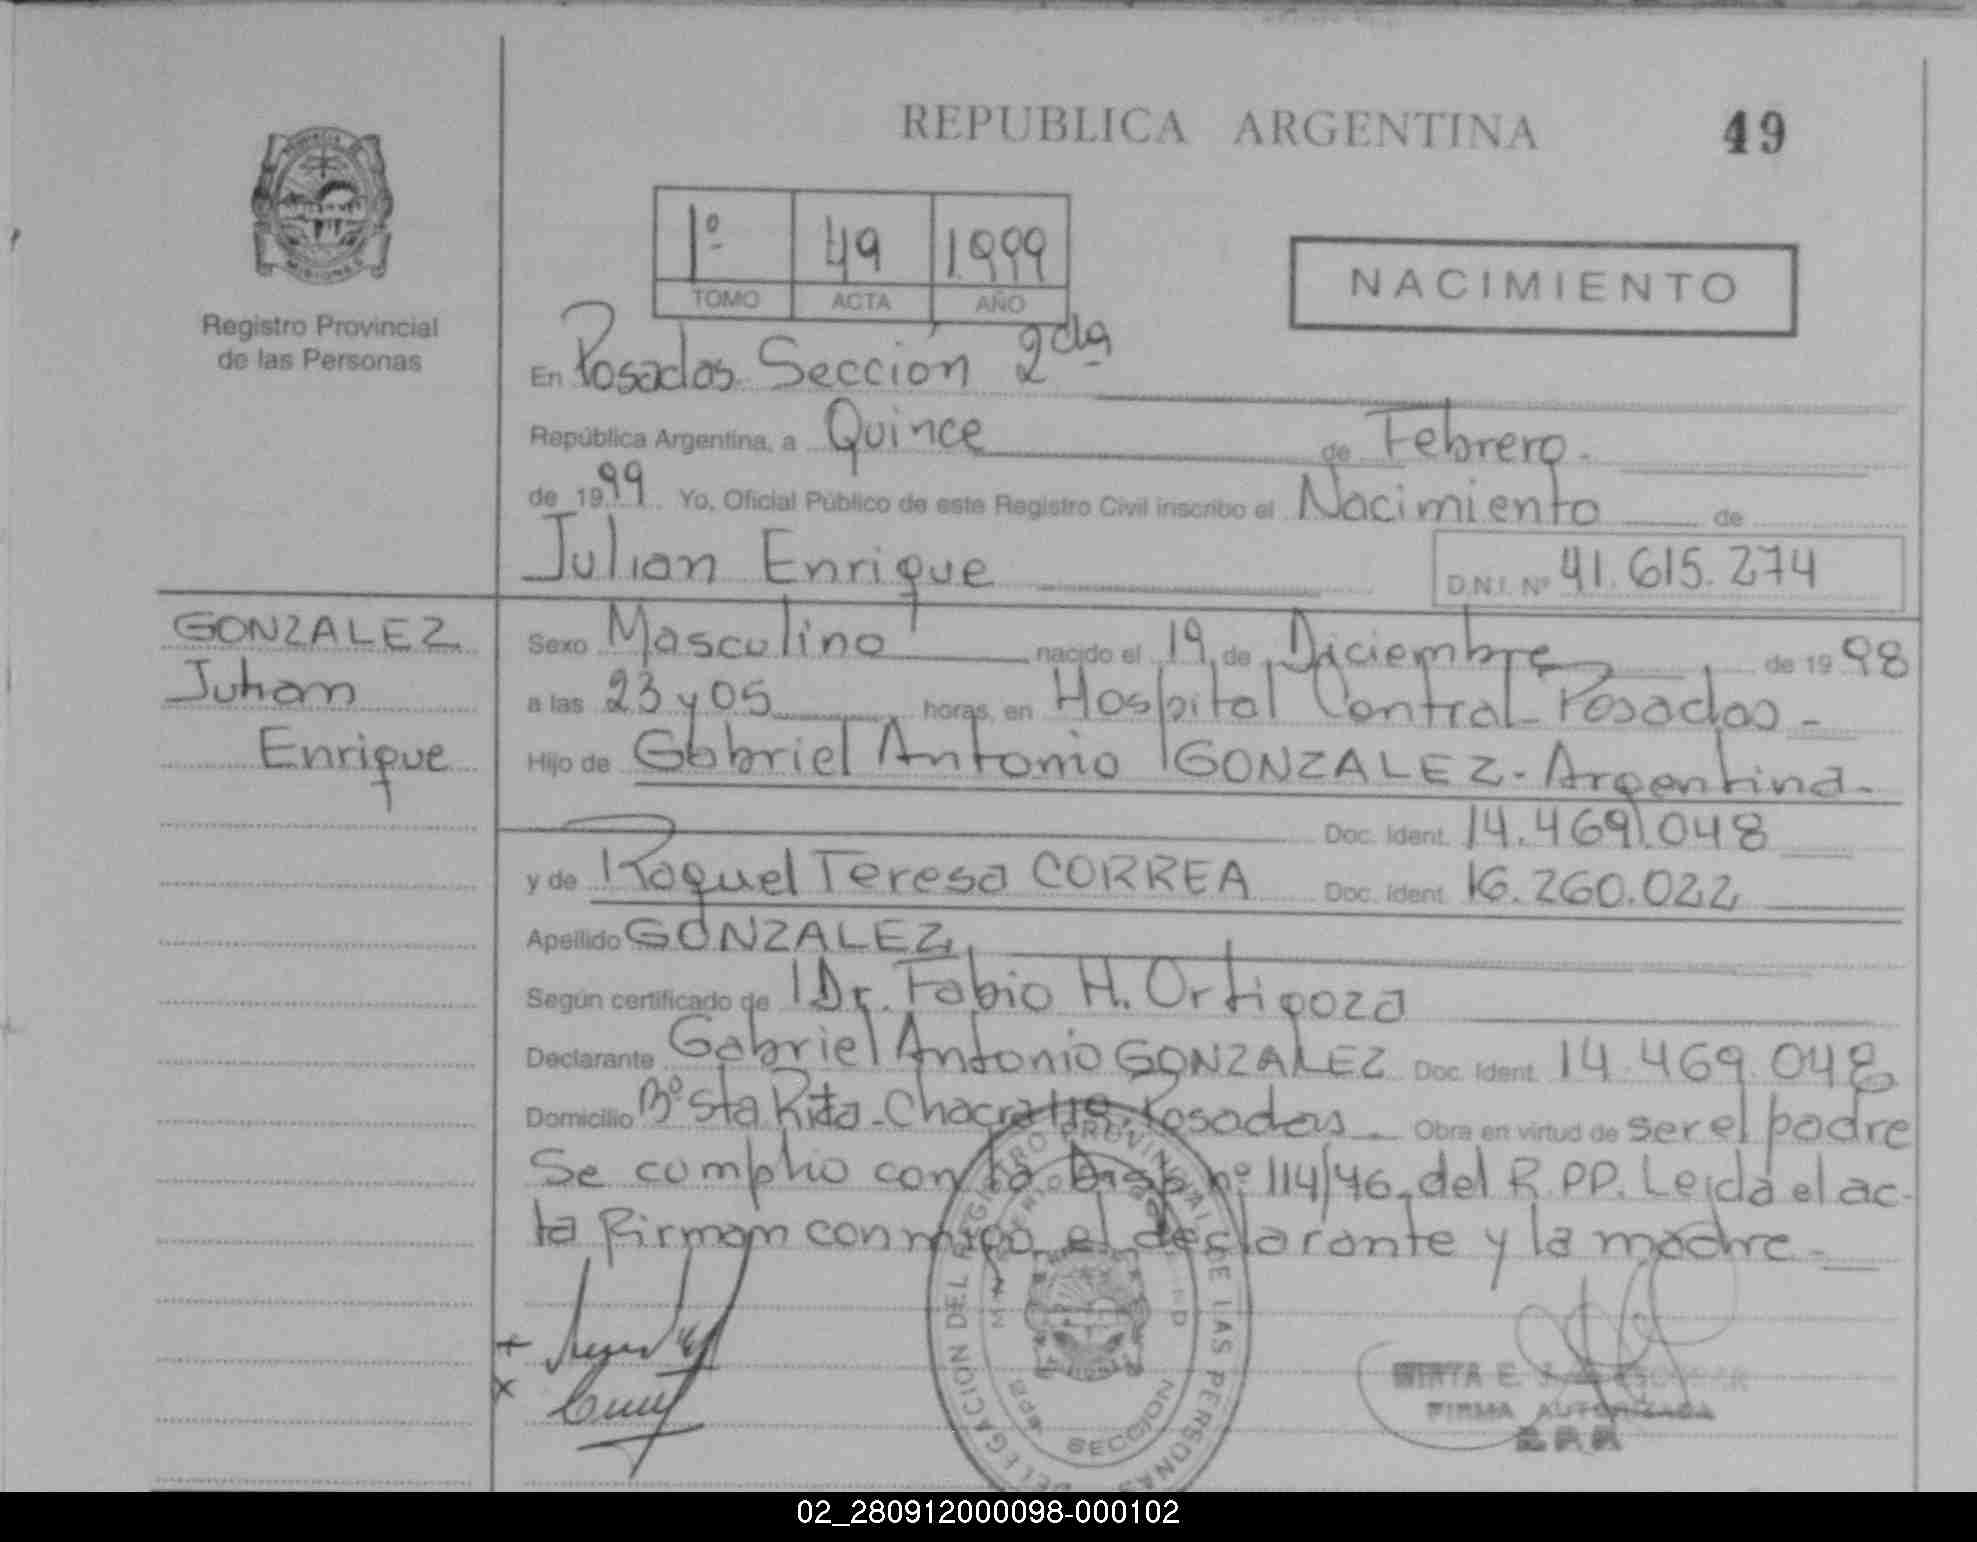 REPUBLICA ARGENTINA
49
PROVINCIA DE
MISIONES
Registro Provincial
de las Personas
1º 49 1.999
TOMO ACTA AÑO
NACIMIENTO
En Posadas Sección 2da
República Argentina, a Quince de Febrero.
de 1999. Yo, Oficial Público de este Registro Civil inscribo el Nacimiento de
Julian Enrique
D.N.I. Nº 41.615.274
GONZALEZ
Julian
Enrique
Sexo Masculino nacido el 19 de Diciembre de 1998
a las 23 y 05 horas, en Hospital Central Posadas -
Hijo de Gabriel Antonio GONZALEZ - Argentina.
Doc. Ident. 14.469.048
y de Raquel Teresa CORREA Doc. Ident. 16.260.022
Apellido GONZALEZ
Según certificado de Dr. Fabio H. Ortigoza
Declarante Gabriel Antonio GONZALEZ Doc. Ident. 14.469.048
Domicilio Bº Sta Rita - Chacra Posadas Obra en virtud de ser el padre
Se cumplio con la Disp. nº 114/46, del R.PP. Leida el ac-
ta firman conmigo el declarante y la madre.-
DELEGACION DEL REGISTRO PROVINCIAL DE LAS PERSONAS
SECCION
FIRMA AUTORIZADA
02_280912000098-000102